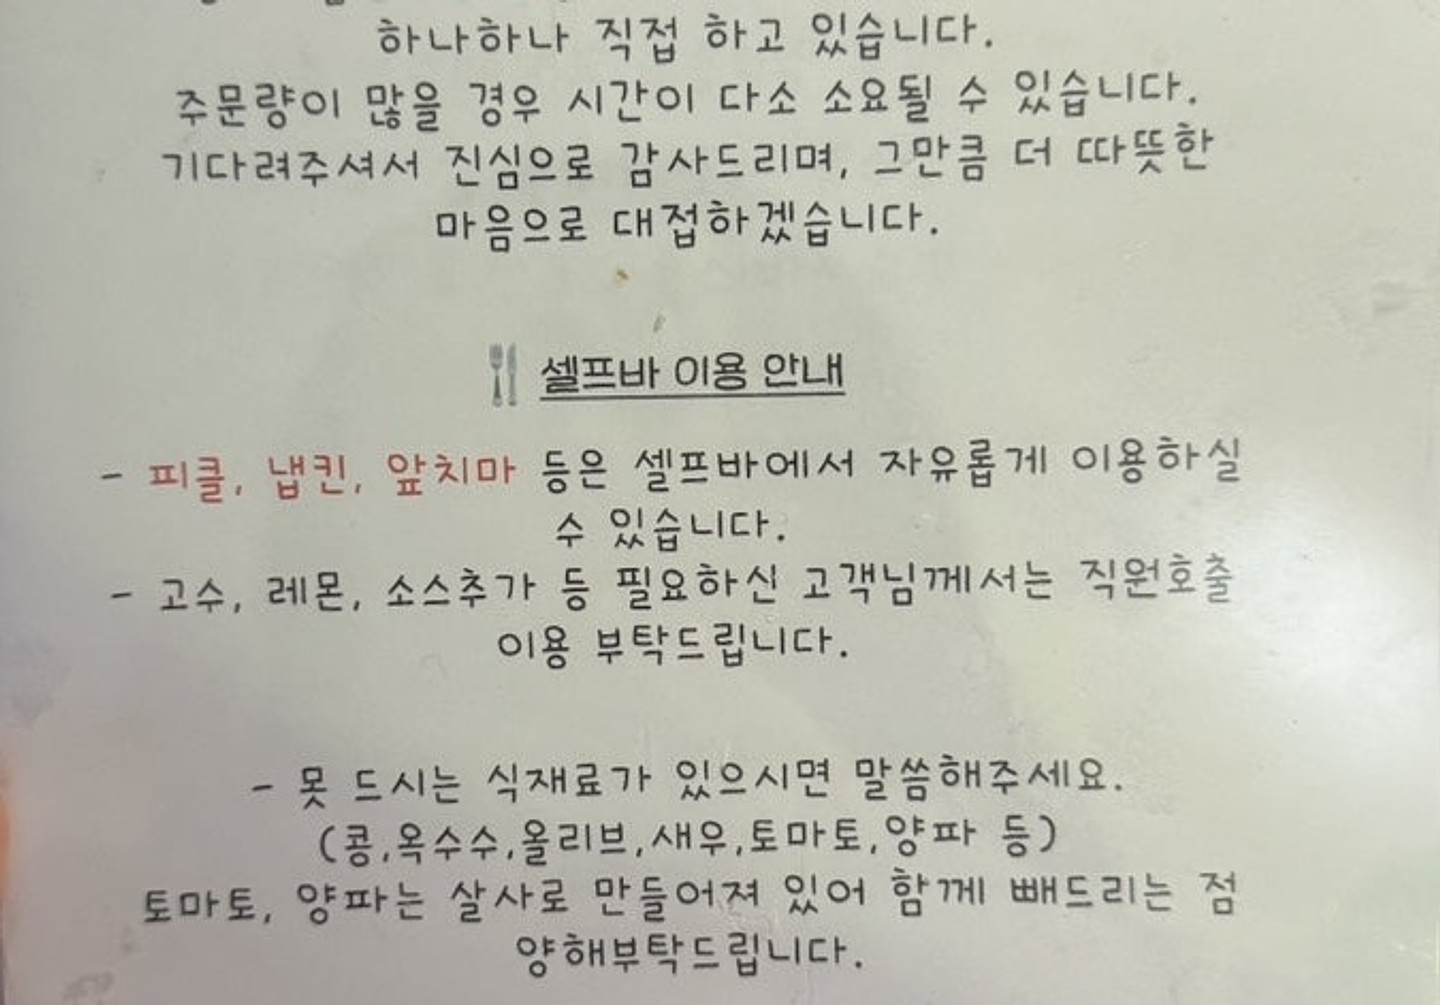 하나하나 직접 하고 있습니다.
주문량이 많을 경우 시간이 다소 소요될 수 있습니다.
기다려주셔서 진심으로 감사드리며, 그만큼 더 따뜻한
마음으로 대접하겠습니다.
셀프바 이용 안내
- 피클, 냅킨, 앞치마 등은 셀프바에서 자유롭게 이용하실
수 있습니다.
- 고수, 레몬, 소스추가 등 필요하신 고객님께서는 직원호출
이용 부탁드립니다.
- 못 드시는 식재료가 있으시면 말씀해주세요.
(콩,옥수수,올리브,새우,토마토,양파 등)
토마토, 양파는 살사로 만들어져 있어 함께 빼드리는 점
양해부탁드립니다.